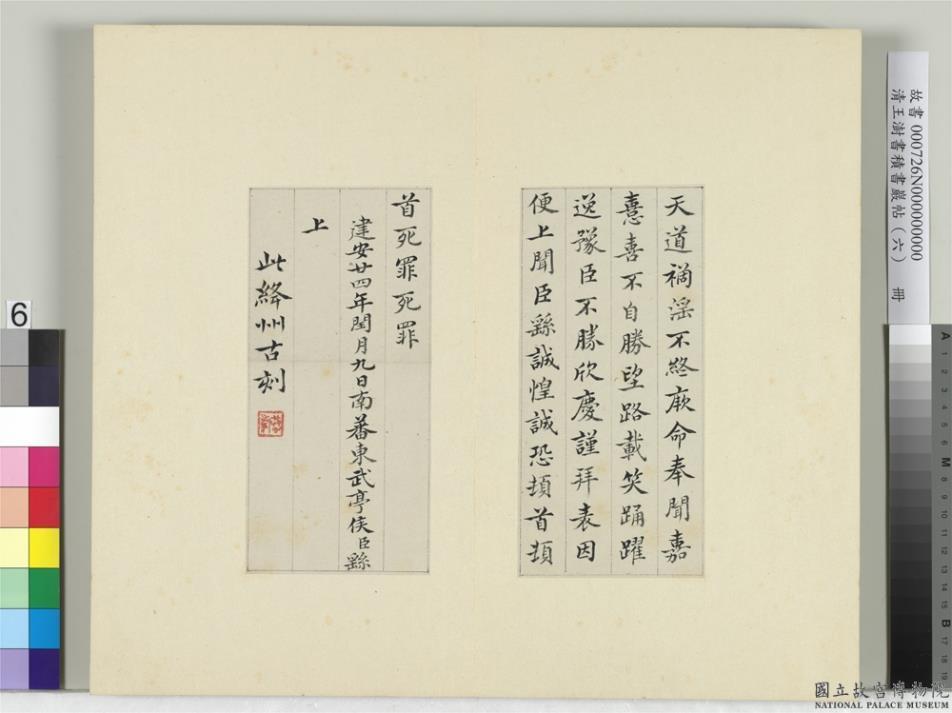 天道禍淫不終厥命奉聞嘉
憙喜不自勝望路載笑踊躍
逸豫臣不勝欣慶謹拜表因
便上聞臣繇誠惶誠恐頓首頓
首死罪死罪
建安廿四年閏月九日南蕃東武亭侯臣繇
上
此絳州古刻
故書 000726N000000000
清王澍書積書巖帖(六) 冊
6
國立故宮博物院
NATIONAL PALACE MUSEUM
A 1 2 3 4 5 6 M 8 9 10 11 12 13 14 15 B 17 18 19